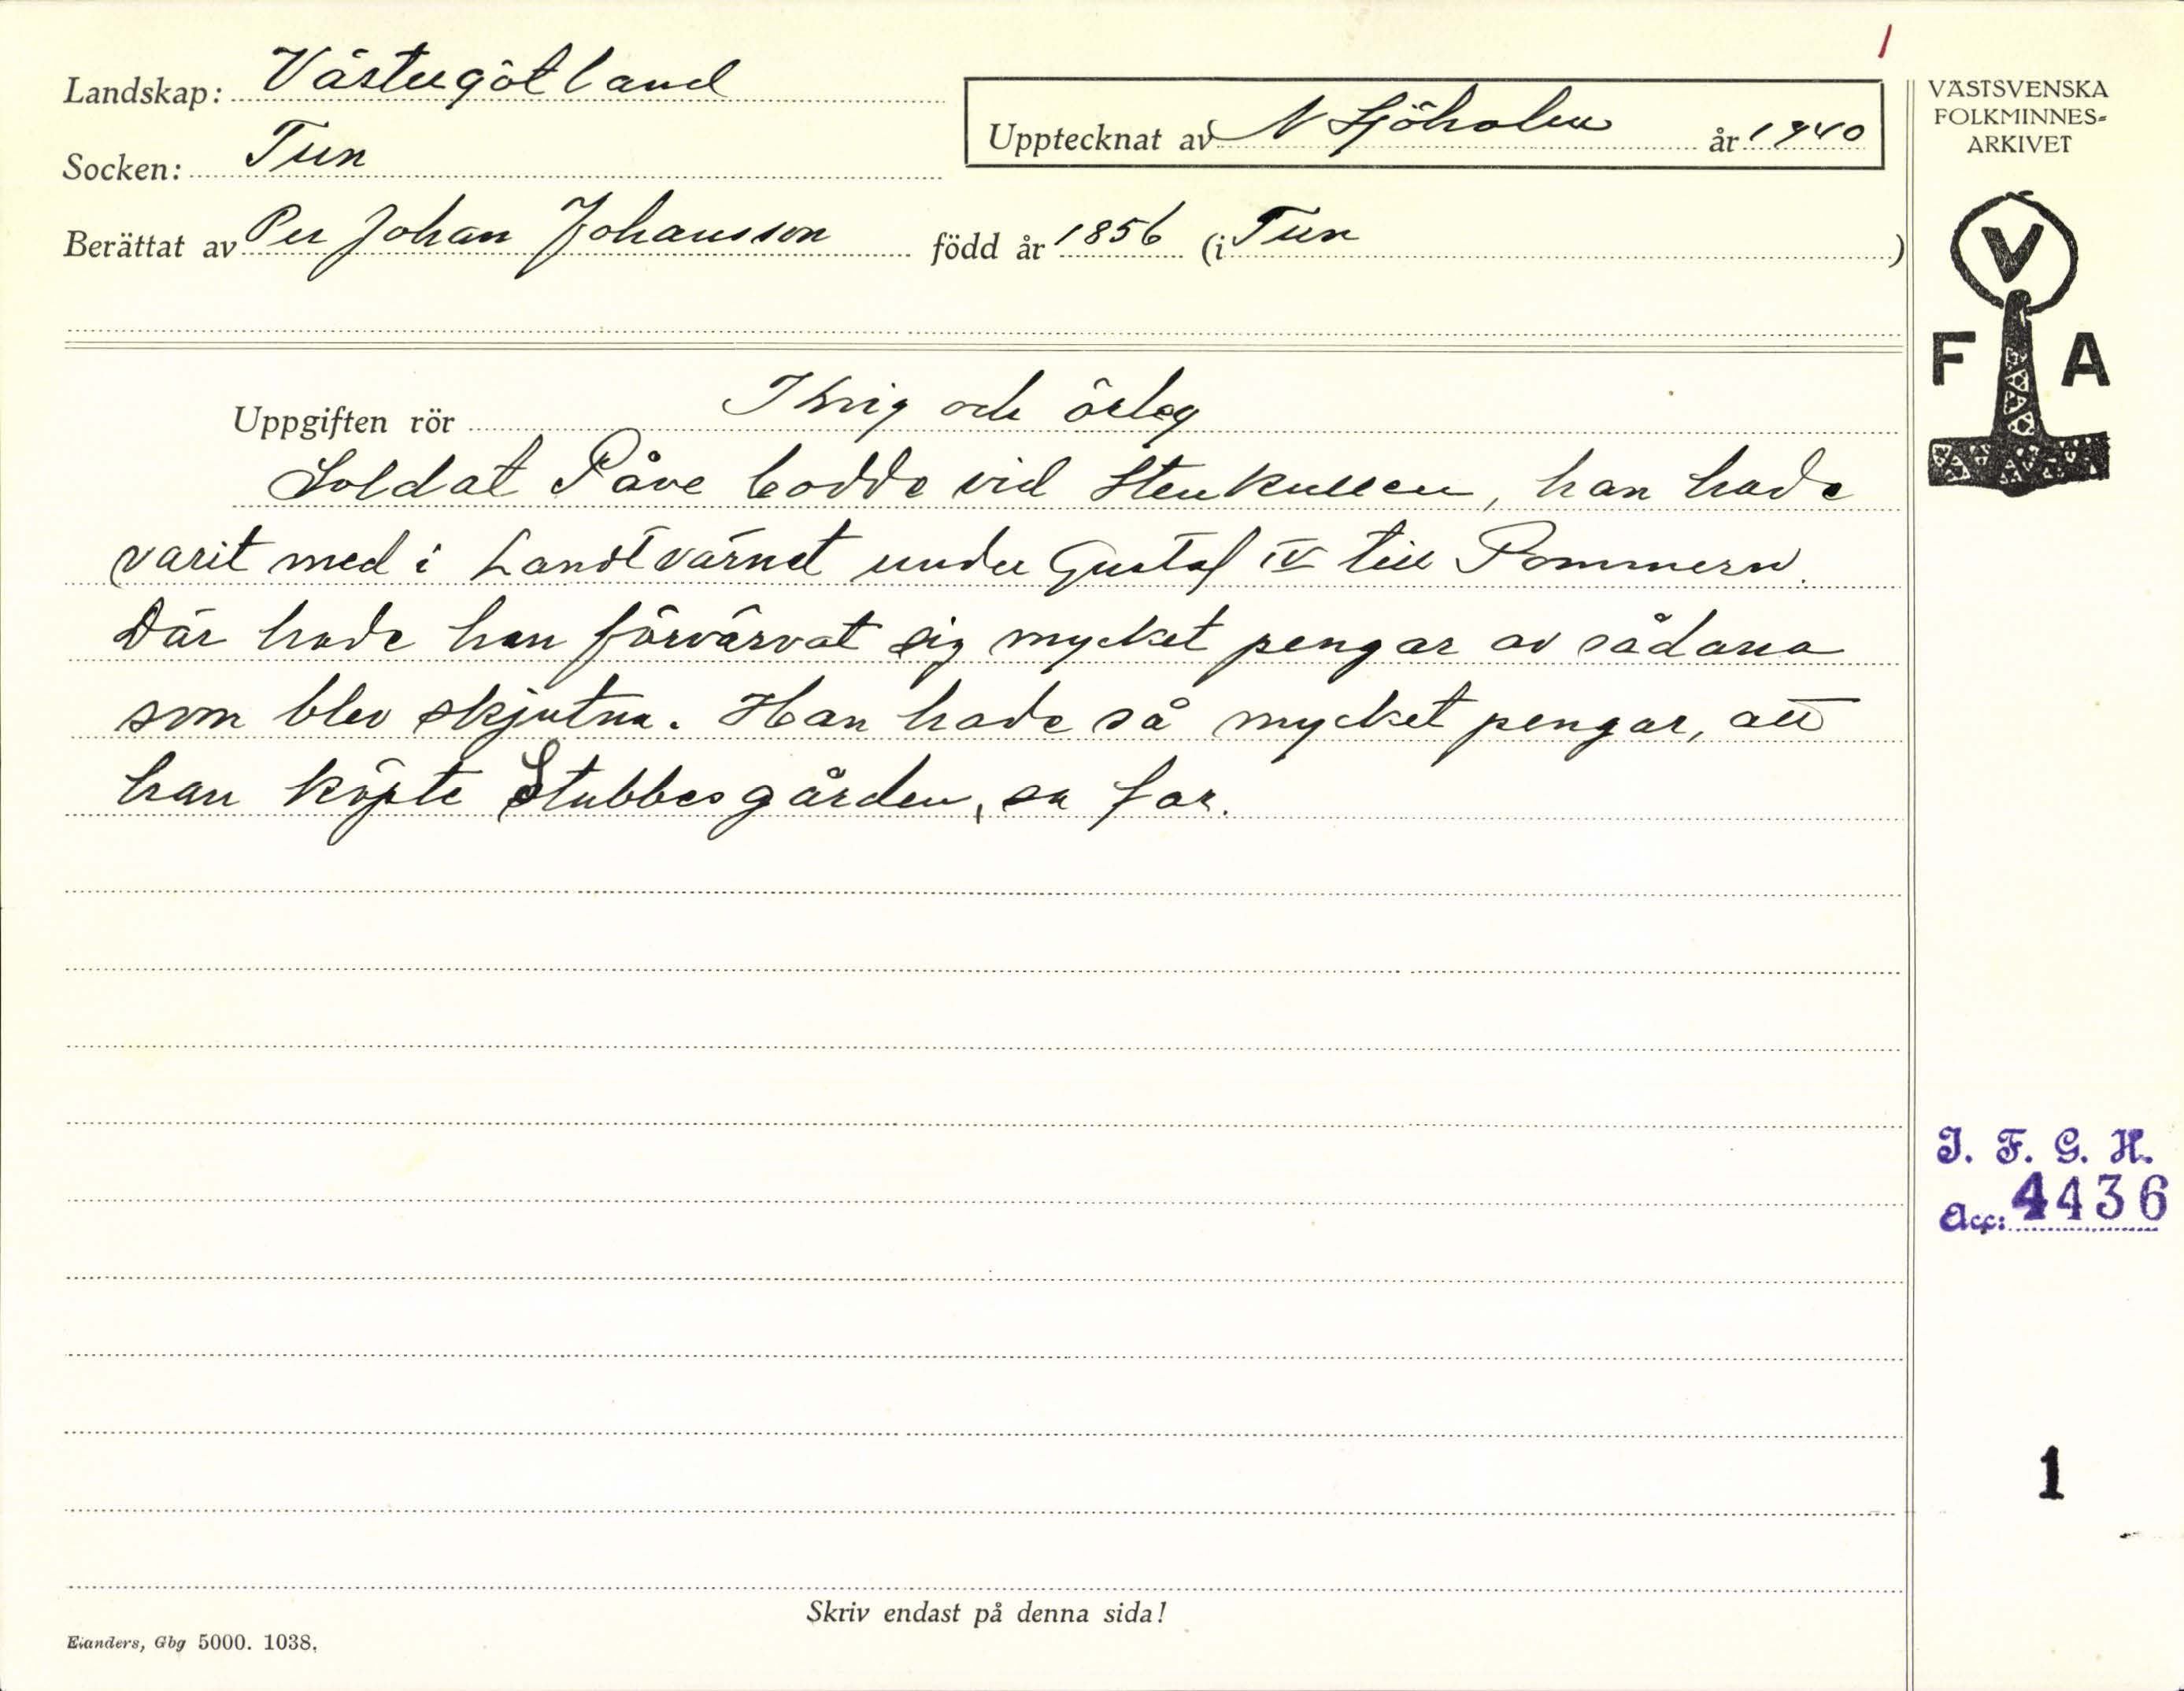 1
Landskap: Västergötland
Upptecknat av N Sjöholm år 1940
Socken: Tun
Berättat av Per Johan Johansson född år 1856 (i Tun)
VÄSTSVENSKA
FOLKMINNES-
ARKIVET
V
F A
Uppgiften rör I krig och örlog
Soldat Påve bodde vid Stenkullen, han hade
varit med i Landtvärnet under Gustaf IV till Pommern.
Där hade han förvärvat sig mycket pengar av sådana
som blev skjutna. Han hade så mycket pengar, att
han köpte Stubbesgården, sa far.
I. F. G. H.
Acc: 4436
1
Skriv endast på denna sida!
Elanders, Gbg 5000. 1038.